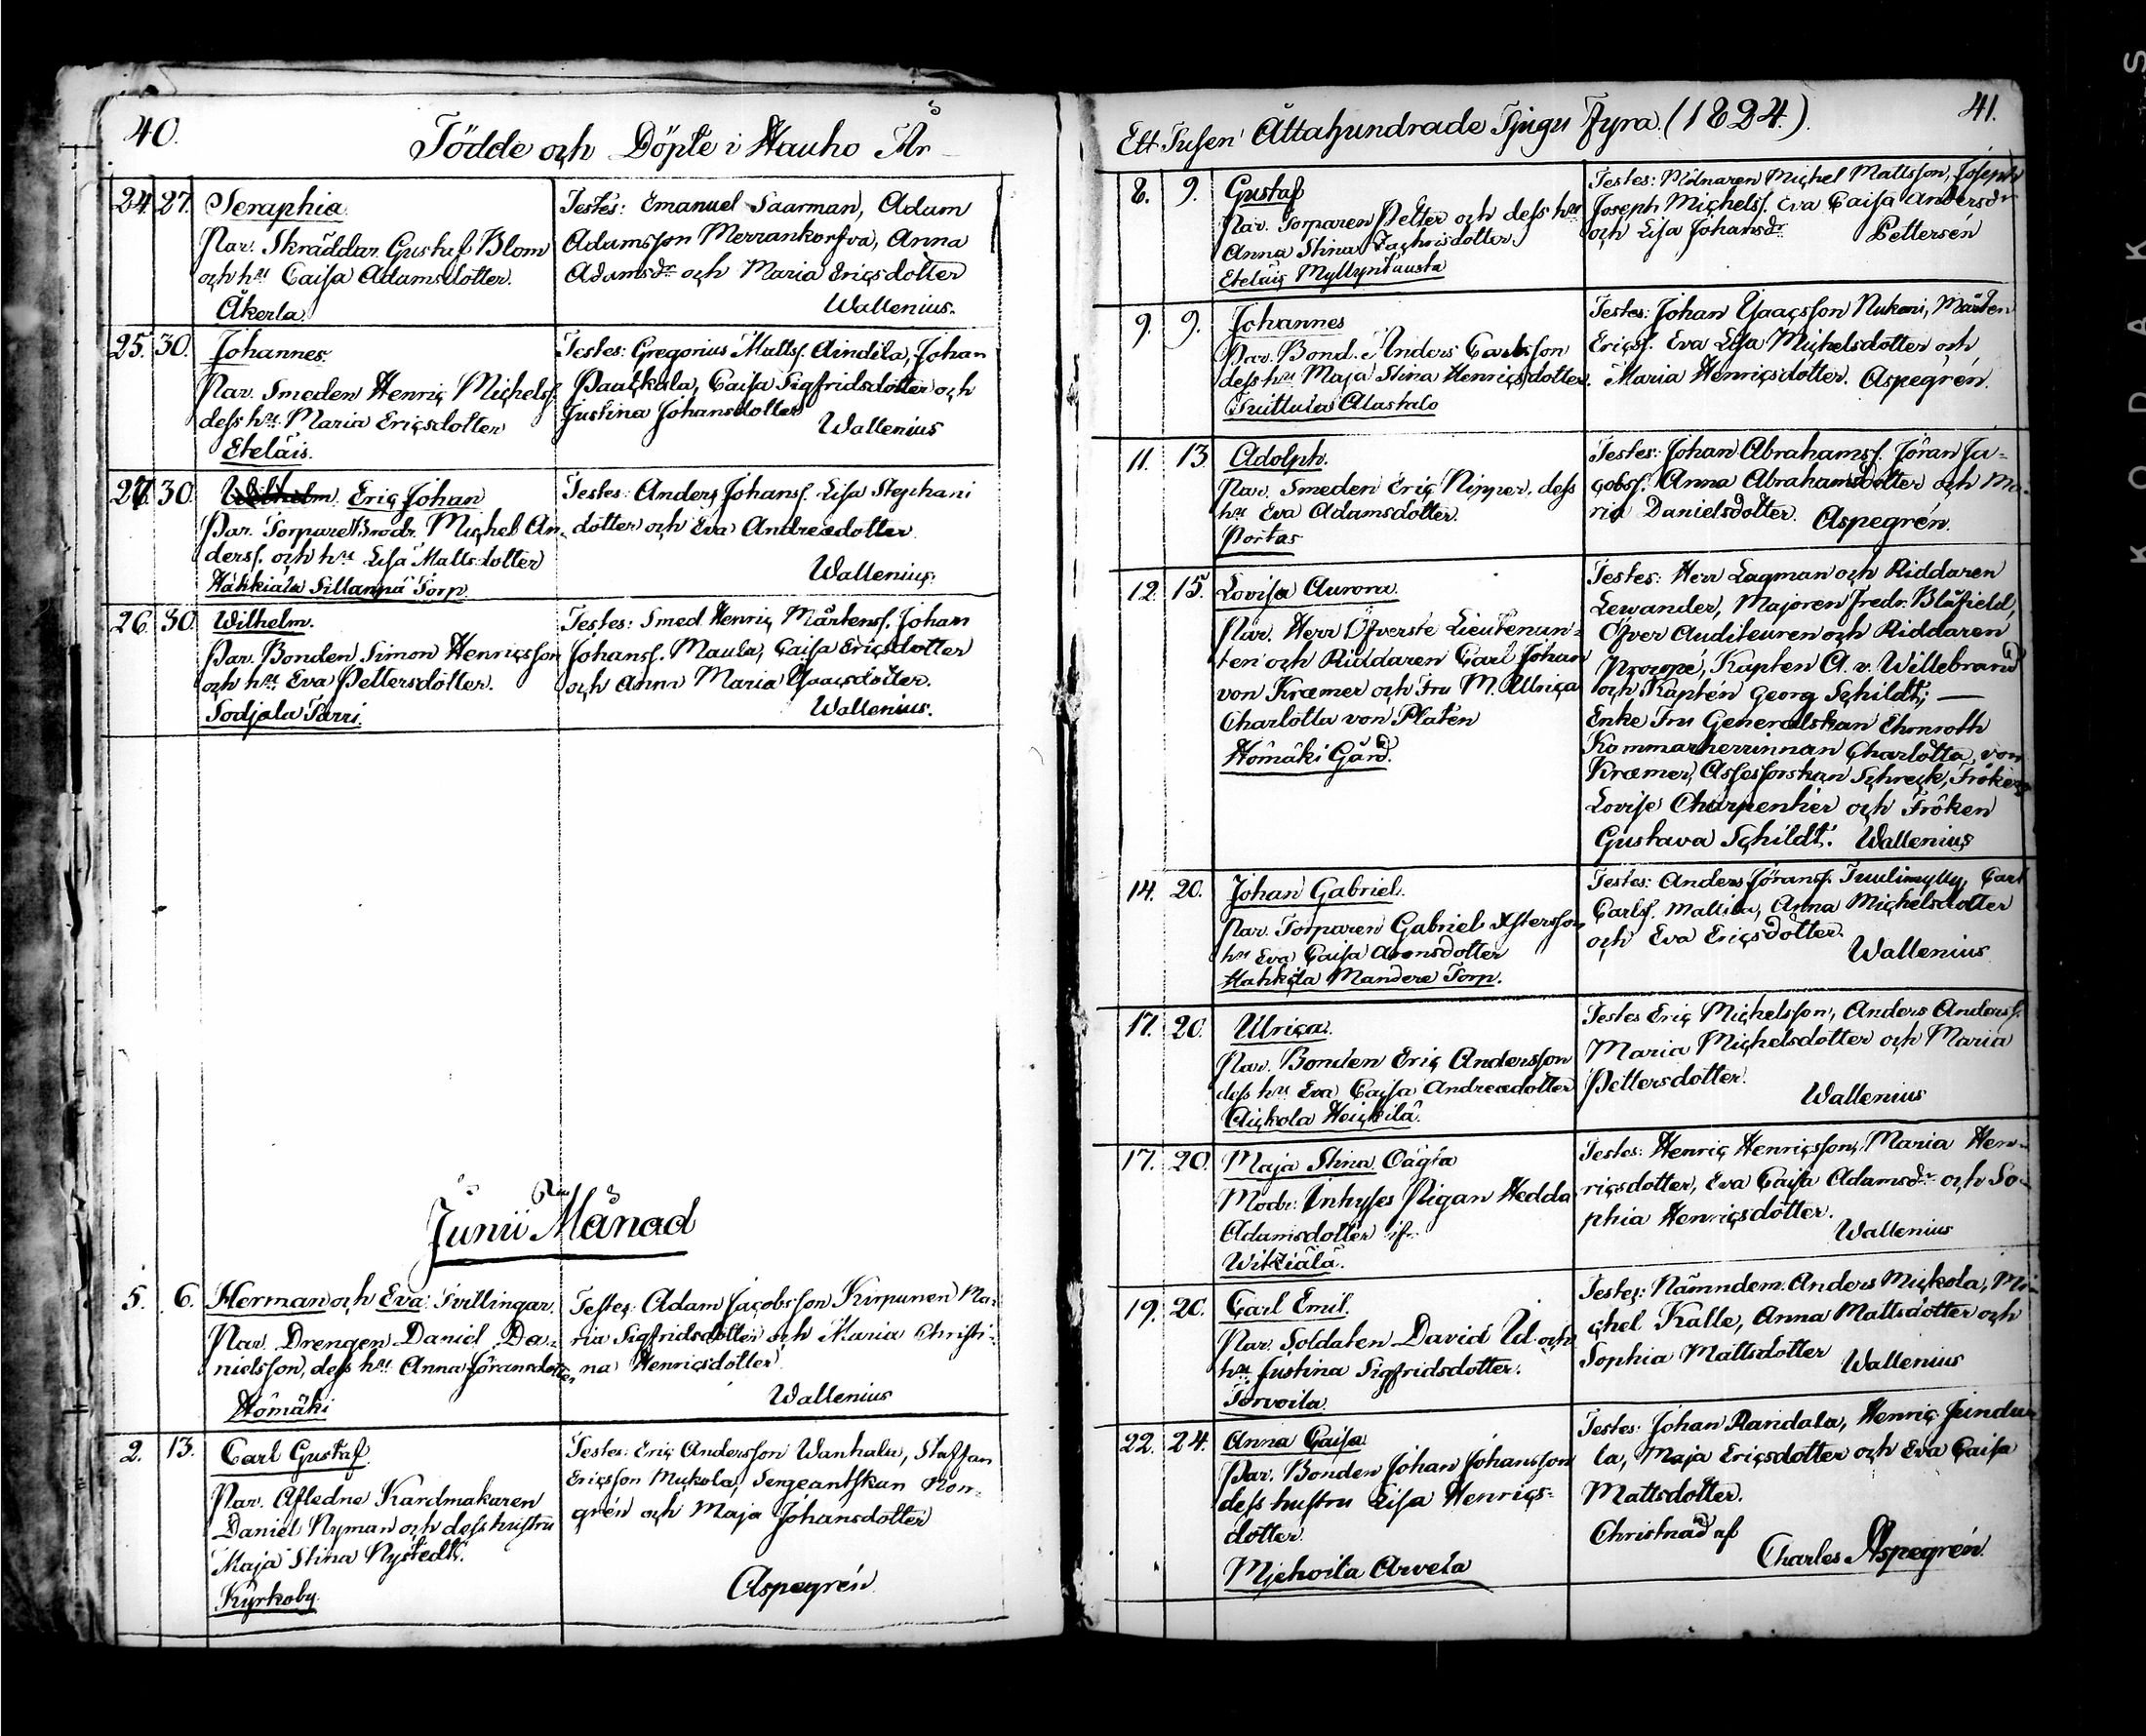 40.
Födde och Döpte i Hauho År
24. 27. Seraphia.
Par. Skräddar. Gustaf Blom
och hu Caisa Adamsdotter.
Åkerla.
Testes: Emanuel Saarman, Adam
Adamsson Merrankorfva, Anna
Adamsdr och Maria Ericsdotter
Wallenius.
25. 30. Johannes.
Par. Smeden Henric Michelss.
dess hu. Maria Ericsdotter
Eteläis.
Testes: Gregorius Mattss. Aindila, Johan
Caisa Sigfridsdotter och
Justina Johansdotter
Wallenius
30 Eric Johan
Par. Torpare Brodr. Michel An-
derss. och hu Lisa Mattsdotter
Hahkiala Sillanpä Torp.
Testes: Anders Johanss. Lisa Stephani
dotter och Eva Andreædotter
Wallenius.
26 30. Wilhelm.
Par. Bonden Simon Henricsson
och hu Eva Pettersdotter.
Sodjala Parri.
Testes: Smed. Henric Mårtenss. Johan
Johanss. Maula, Caisa Ericsdotter
och Anna Maria Isaacsdotter.
Wallenius.
Junii Månad
5. 6. Herman och Eva. Tvillingar.
Par. Drengen Daniel Da-
nielsson, dess hu Anna Jöransdotter
Hömäki
Testes: Adam Jacobsson Kirpunen Ma-
ria Sigfridsdotter och Maria Christi-
na Henricsdotter
Wallenius
2. 13. Carl Gustaf.
Par. Afledne Kardmakaren
Daniel Nyman och dess hustru
Maja Stina Nystedt.
Kyrkoby.
Testes: Eric Andersson Wanhala, Staffan
Ericsson Mukola, Sergeantskan Non-
grén och Maja Johansdotter
Aspegrén
41.
Ett Tusen Åttahundrade Tjugu Fyra. (1824.)
8. 9. Gustaf
Par. Torparen Petter och dess hu
Anna Stina Zachrisdotter.
Eteläis Myllyntausta
Testes: Mölnaren Michel Mattsson, Joseph
Joseph Michelss. Eva Caisa Andersdr
och Lisa Johansdr. Pettersén
9. 9. Johannes
Par. Bond. Anders Carlsson
dess hu Maja Stina Henricsdotter.
Tuittula Alastalo
Testes: Johan Isaacsson Nukari, Mårten
Ericss. Eva Lisa Michelsdotter och
Maria Henricsdotter. Aspegrén.
11. 13. Adolph.
Par. Smeden Eric Nipper. dess
hu Eva Adamsdotter.
Portas
Testes: Johan Abrahamss. Jöran Ja-
cobss. Anna Abrahamsdotter och Ma-
ria Danielsdotter. Aspegrén.
12. 15. Lovisa Aurora.
Par. Herr Öfverste Lieutenan-
ten och Riddaren Carl Johan
von Kræmer och Fru M. Ulrica
Charlotta von Platen
Hömäki Gård.
Testes: Herr Lagman och Riddaren
Lewander, Majoren Fredr. Blåfield,
Öfver Auditeuren och Riddaren
Procopé, Kapten A. v. Willebrand
och Kaptén Georg Schildt; —
Enke Fru Generalskan Ehrnroth
Kammarherrinnan Charlotta von
Kræmer, Assessorskan Schreck, Fröken
Lovise Charpentier och Fröken
Gustava Schildt. Wallenius
14. 20. Johan Gabriel.
Par. Torparen Gabriel
hu Eva Caisa Aronsdotter
Mandere Torp.
Testes: Anders Jöranss. Tuulimylly, Carl
Carlss. Mattila, Anna Michelsdotter
och Eva Ericsdotter.
Wallenius
17. 20. Ulrica.
Par. Bonden Eric Andersson
dess hu Eva Caisa Andreædotter
Aickola Heickilä.
Testes Eric Michelsson, Anders Anderss.
Maria Michelsdotter och Maria
Pettersdotter.
Wallenius
17. 20. Maja Stina. Oägta
Modr: Inhyses Pigan Hedda
Adamsdotter
Witziälä.
Testes: Henric Henricsson, Maria Hen-
ricsdotter, Eva Caisa Adamsdr och So-
phia Henricsdotter.
Wallenius
19. 20. Carl Emil.
Par. Soldaten David Ud och
hu Justina Sigfridsdotter.
Torvoila.
Testes: Nämndem. Anders Mickola, Mi-
chel Kalle, Anna Mattsdotter och
Sophia Mattsdotter Wallenius
22. 24. Anna Caisa.
Par. Bonden Johan Johansson
dess hustru Lisa Henrics-
dotter.
Miehoila Arvela
Testes: Johan Randala, Henric Jundu-
la, Maja Ericsdotter och Eva Caisa
Mattsdotter.
Christnad af
Charles Aspegrén.
KODAK S